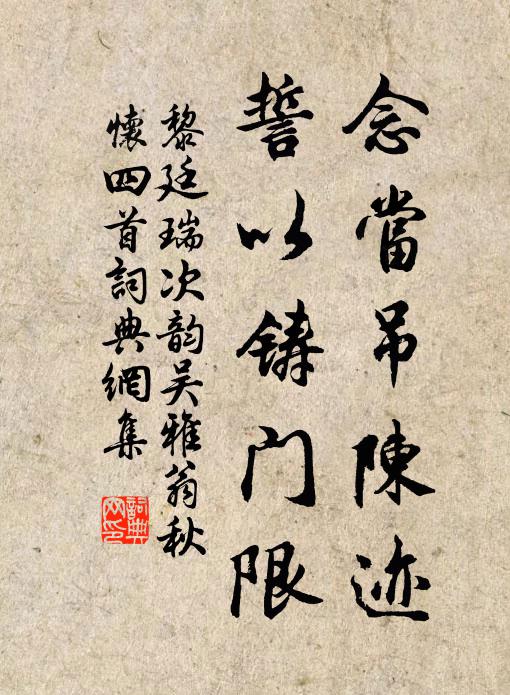 念當吊陳迹
誓以鑄门限
黎廷瑞次韵吴雅翁秋
懷四首詞典網集
詞典
网印